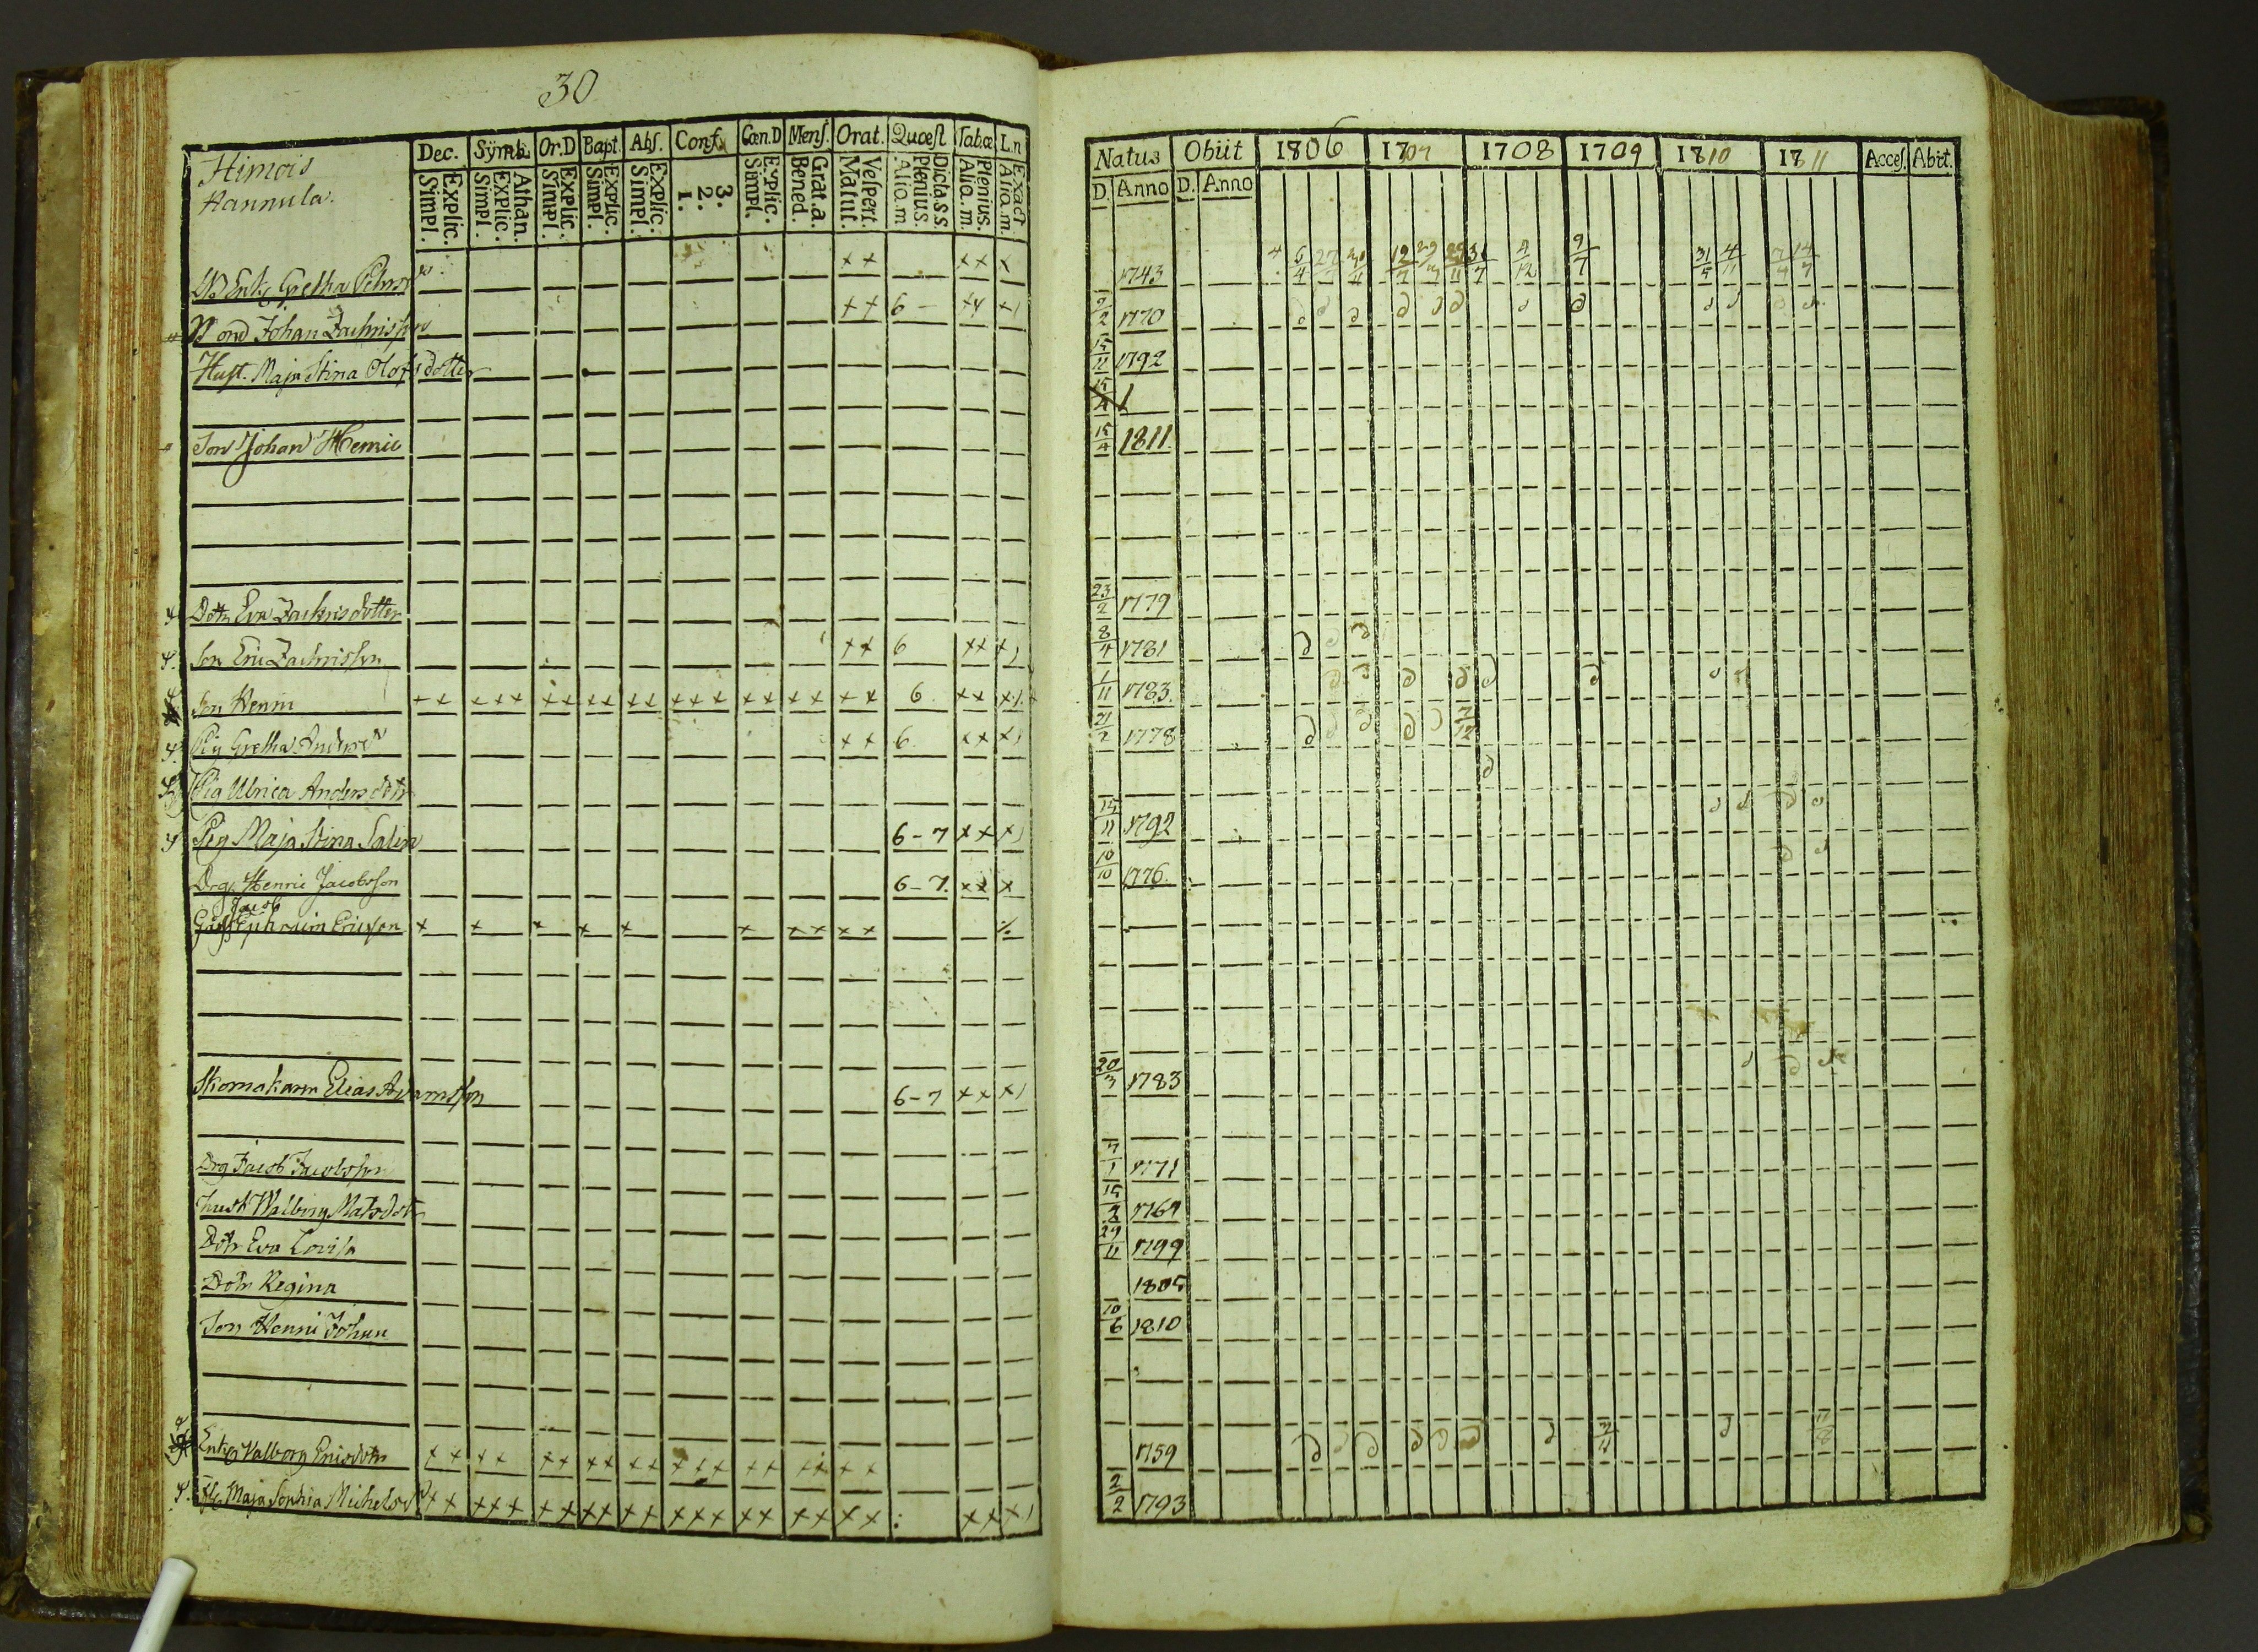 30
Himois
Hannula.
Dec. Symb. Or.D Bapt. Abs. Conf. Cœn.D Mens. Orat. Quæst Tabæ L.n
Explic. Simpl. Athan. Explic. Simpl. Explic. Simpl. Explic. Simpl. Explic. Simpl. 3. 2. 1. Explic. Simpl. Grat.a. Bened. Vespert. Matut. Dicta.S.S. Plenius. Aliq.m Plenius. Aliq.m. Exact Aliq.m.
Natus Obiit 1806 1807 1708 1709 1810 1811 Acces. Abit.
D. Anno D. Anno
Enk. Gretha ++ ++ + 1743 6/4 9/12 9/7 31/5 4/11 14/7
Johan Zachrisson ++ 6 - ++ +) 1770
Hust. Maja Stina Olofsdotter 15/11 1792
Son Johan Henric 15/4 1811.
Dott. Eva Zachrisdotter 23/2 1779
Son Eric Zachrisson ++ 6 ++ +) 8/4 1781
Son Henric ++ +++ ++ ++ ++ +++ ++ ++ ++ 6 ++ +) 1/11 1783.
Pig Gretha Anders ++ 6 ++ +) 21/2 1778 7/12
Pig Ulrica Andersdotr
Pig Maja Stina Salin 6-7 ++ +) 15/11 1792
Drg. Henric Jacobsson 6-7. ++ + 10/10 1776.
Jacob
Ephraim Ericsson + + + + + + ++ ++
Skomakaren Elias Adamsson 6-7 ++ +) 20/3 1783
Drg Jacob Jacobsson 7/1 1771
hust Walborg Matsdotr 1769
Dotr Eva Lovisa 29/11 1799
Dotr Regina 1805
Son Henric Johan 10/6 1810
Enk. Valborg Ericsdotr ++ ++ ++ ++ ++ +++ ++ ++ ++ 1759
Maja Sophia Michelsd ++ +++ ++ ++ ++ +++ ++ ++ ++ ++ +) 2/2 1793